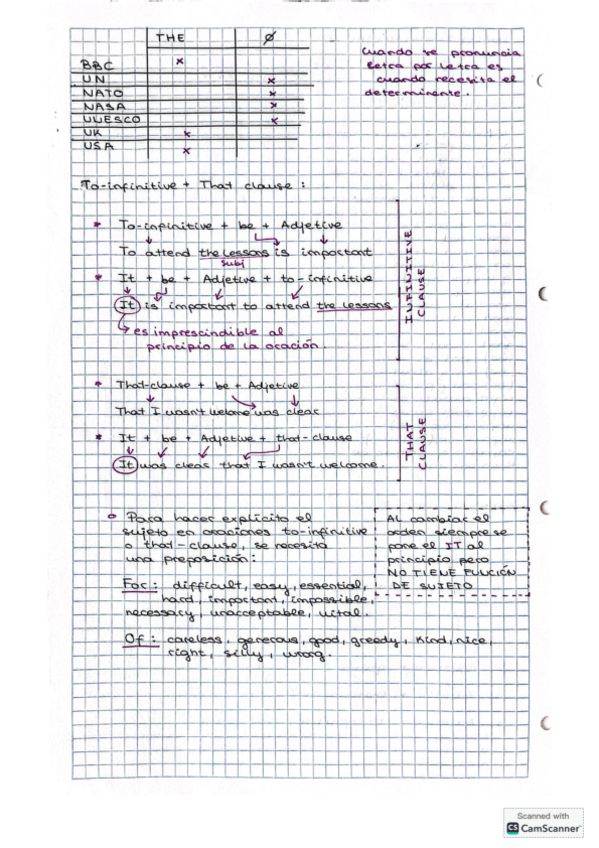 THE Ø
BBC x
UN x
NATO x
NASA x
UNESCO x
UK x
USA x
Cuando se pronuncia
letra por letra es
cuando necesita el
determinante.
To-infinitive + That clause :
* To-infinitive + be + Adjetive
To attend the lessons is important
subj
* It + be + Adjetive + to-infinitive
It is important to attend the lessons
es imprescindible al
principio de la oración.
INFINITIVE
CLAUSE
* That-clause + be + Adjetive
That I wasn't welcome was clear
* It + be + Adjetive + that-clause
It was clear that I wasn't welcome.
THAT
CLAUSE
Para hacer explícito el
sujeto en oraciones to-infinitive
o that-clause, se necesita
una preposición:
For: difficult, easy, essential,
hard, important, impossible,
necessary, unacceptable, vital.
Of: careless, generous, good, greedy, kind, nice,
right, silly, wrong.
AL cambiar el
orden siempre se
pone el IT al
principio pero
NO TIENE FUNCIÓN
DE SUJETO
Scanned with
CS CamScanner